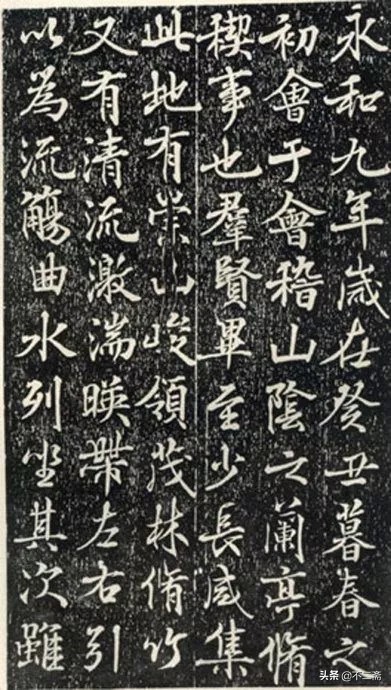 永和九年歲在癸丑暮春之
初會于會稽山陰之蘭亭脩
稧事也羣賢畢至少長咸集
此地有崇山峻領茂林脩竹
又有清流激湍暎帶左右引
以為流觴曲水列坐其次雖
头条 @不二斋